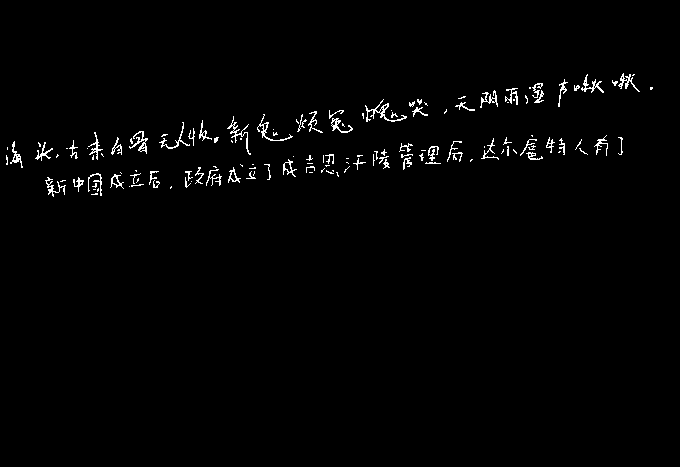 海头,古来白骨无人收。新鬼烦冤旧鬼哭,天阴雨湿声啾啾.
新中国成立后,政府成立了成吉思汗陵管理局,达尔扈特人有了